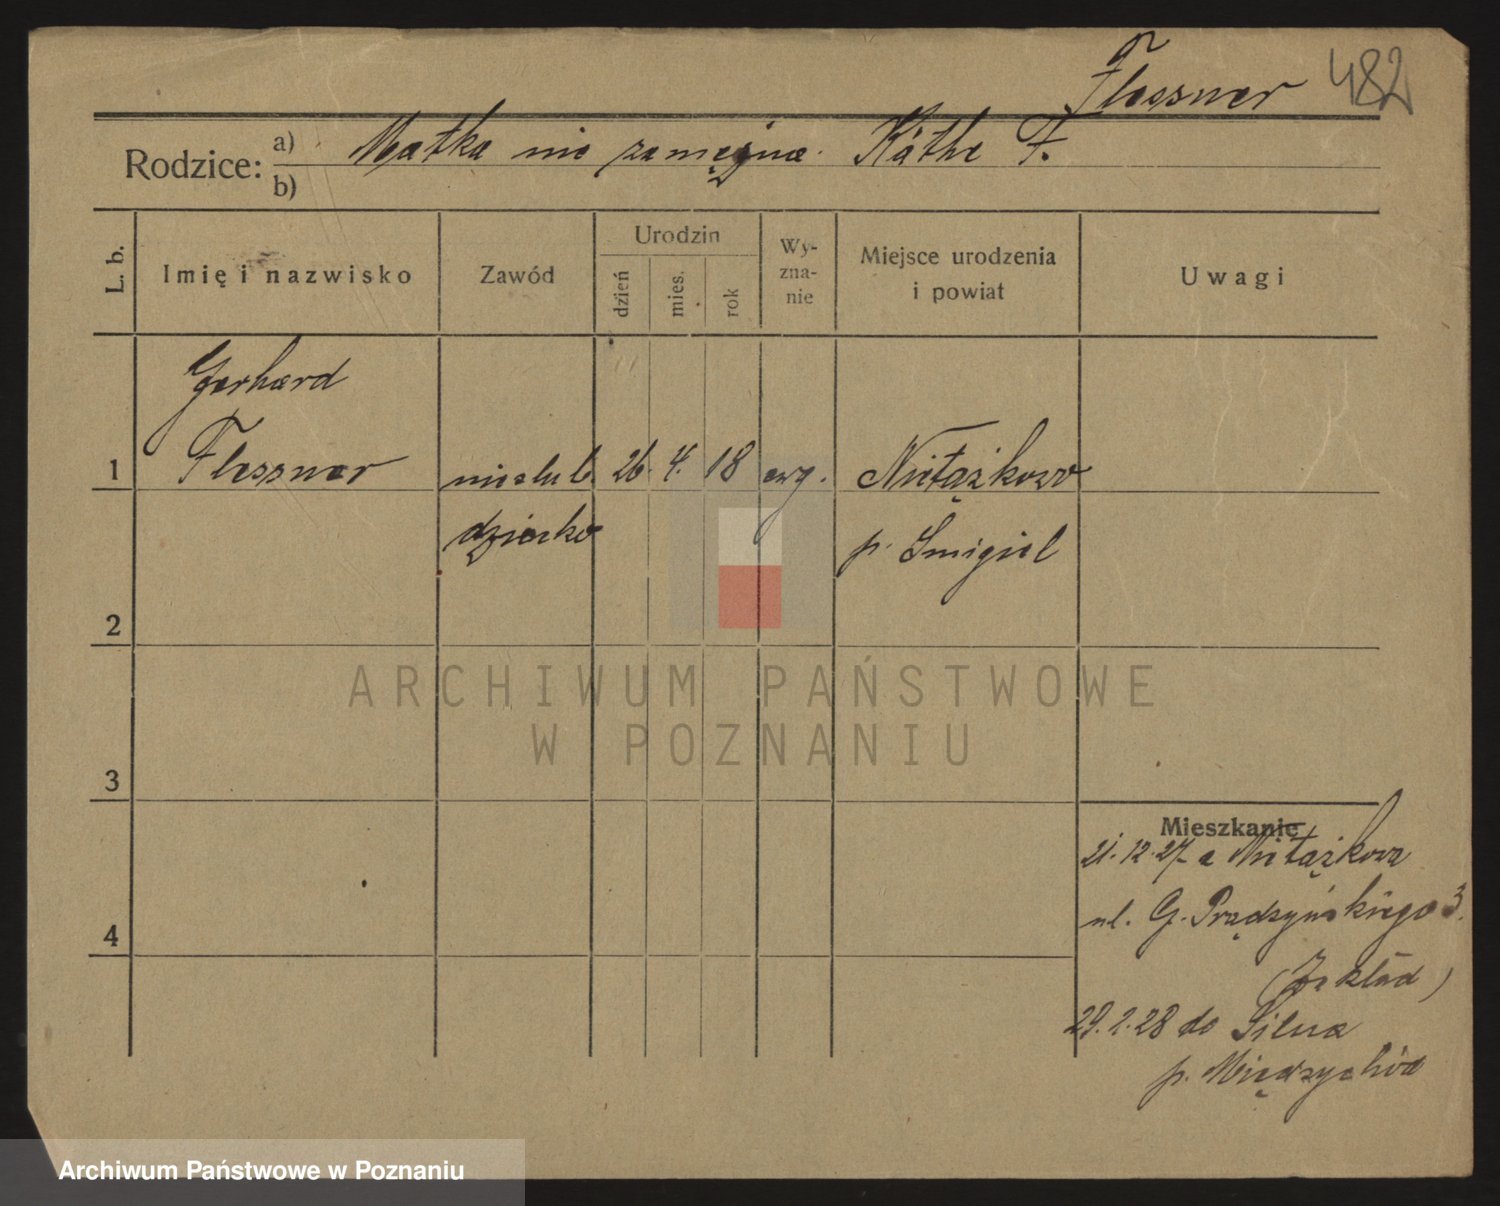 Flessner 482
Rodzice: a) Matka nie zamężna. Käthe F.
b)
L. b. Imię i nazwisko Zawód Urodzin dzień mies. rok Wy-zna-nie Miejsce urodzenia i powiat Uwagi
Gerhard
1 Flessner nieślub. 26. 4. 18 ewg. Nietążkowo
dziecko p. Śmigiel
2
ARCHIWUM PAŃSTWOWE
W POZNANIU
3
Mieszkanie
21.12.27 z Nietążkowa
4 ul. G. Prądzyńskiego 3.
(Zakład)
29.2.28 do Silna
p. Międzychód
Archiwum Państwowe w Poznaniu